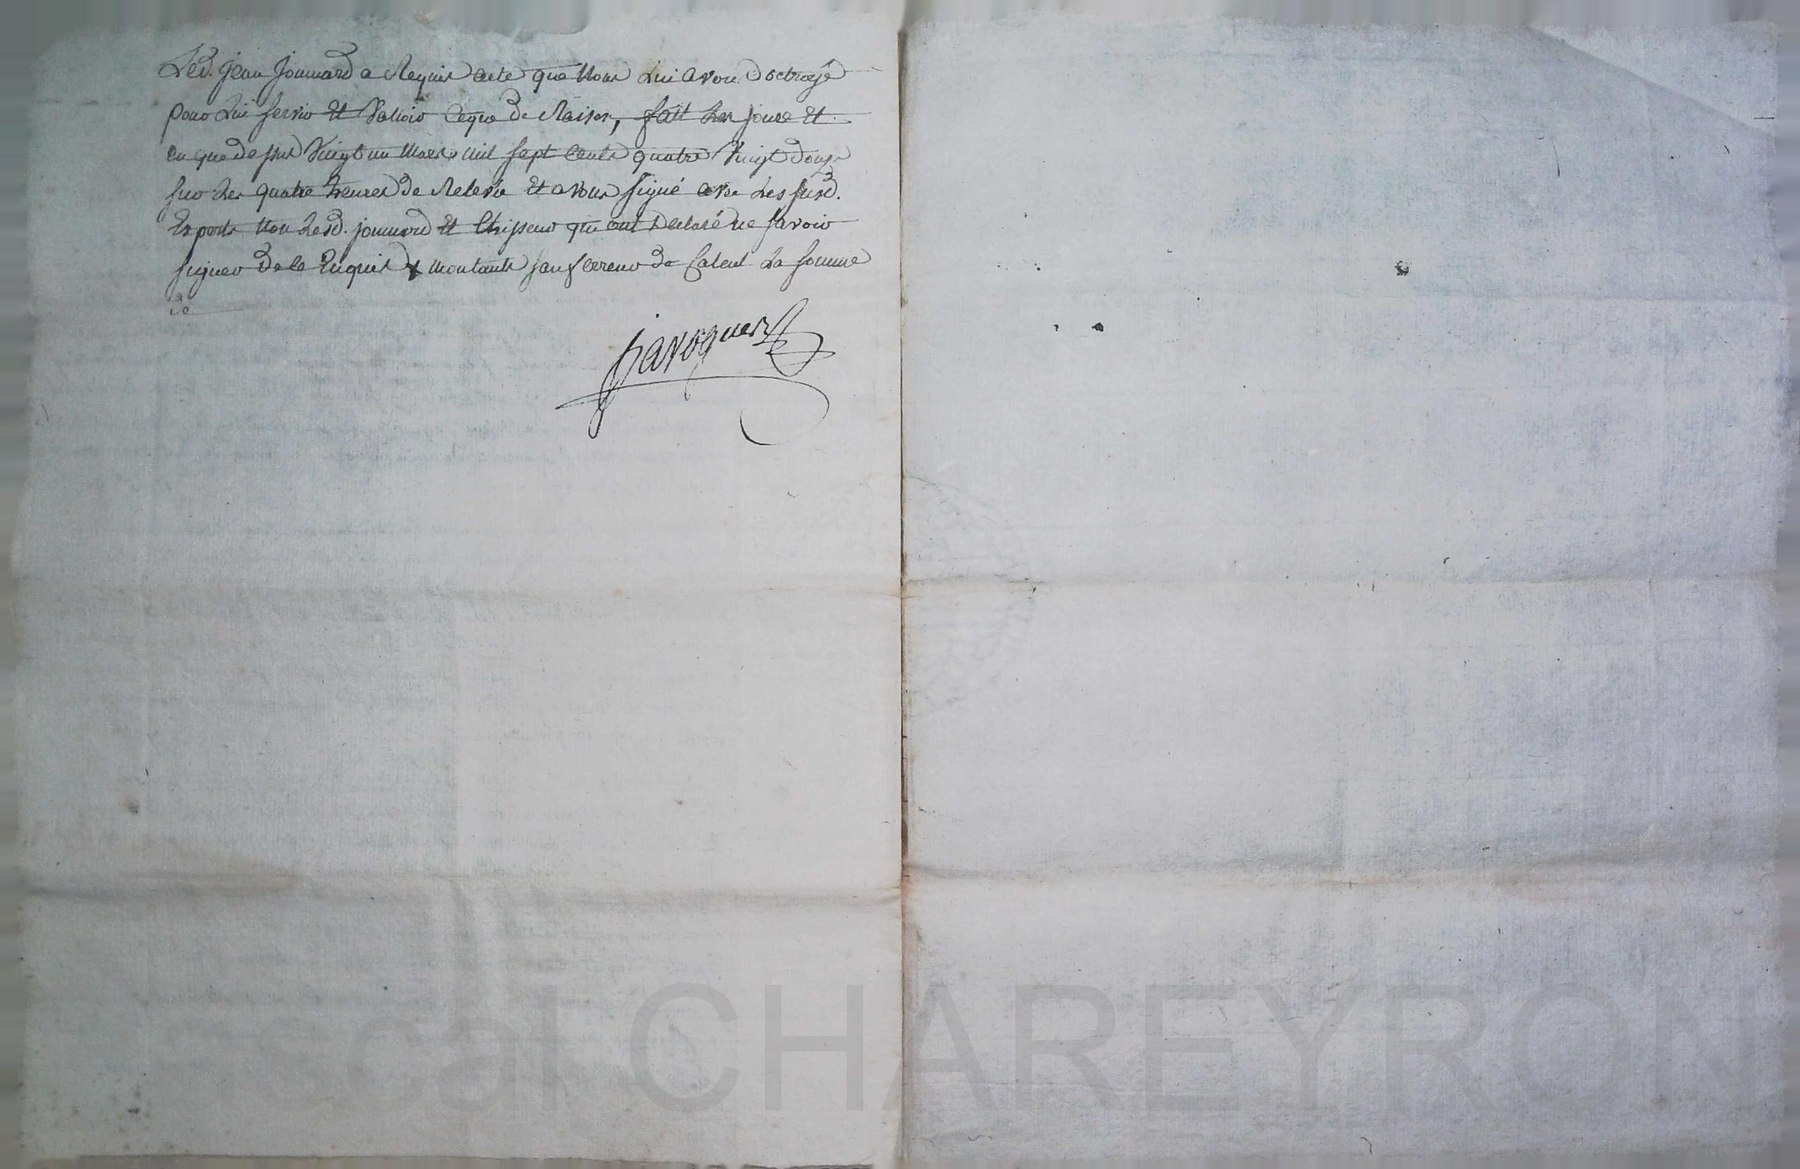 Led. Jean Joumard a Requis acte que Nous Lui avons octroyé
pour Lui servir Et Valloir Ceque de Raison, fait Les jour Et
an que dessus Vingt un Mars Mil sept Cents quatre Vingt douze
sur Les quatre heures de Relevée Et avons signé avec Les susd.
Experts Non Lesd. joumard Et qui ont Declaré ne savoir
signer de ce Enquis montants sauf erreur de Calcul La somme
de
Javogues
Pascal CHAREYRON